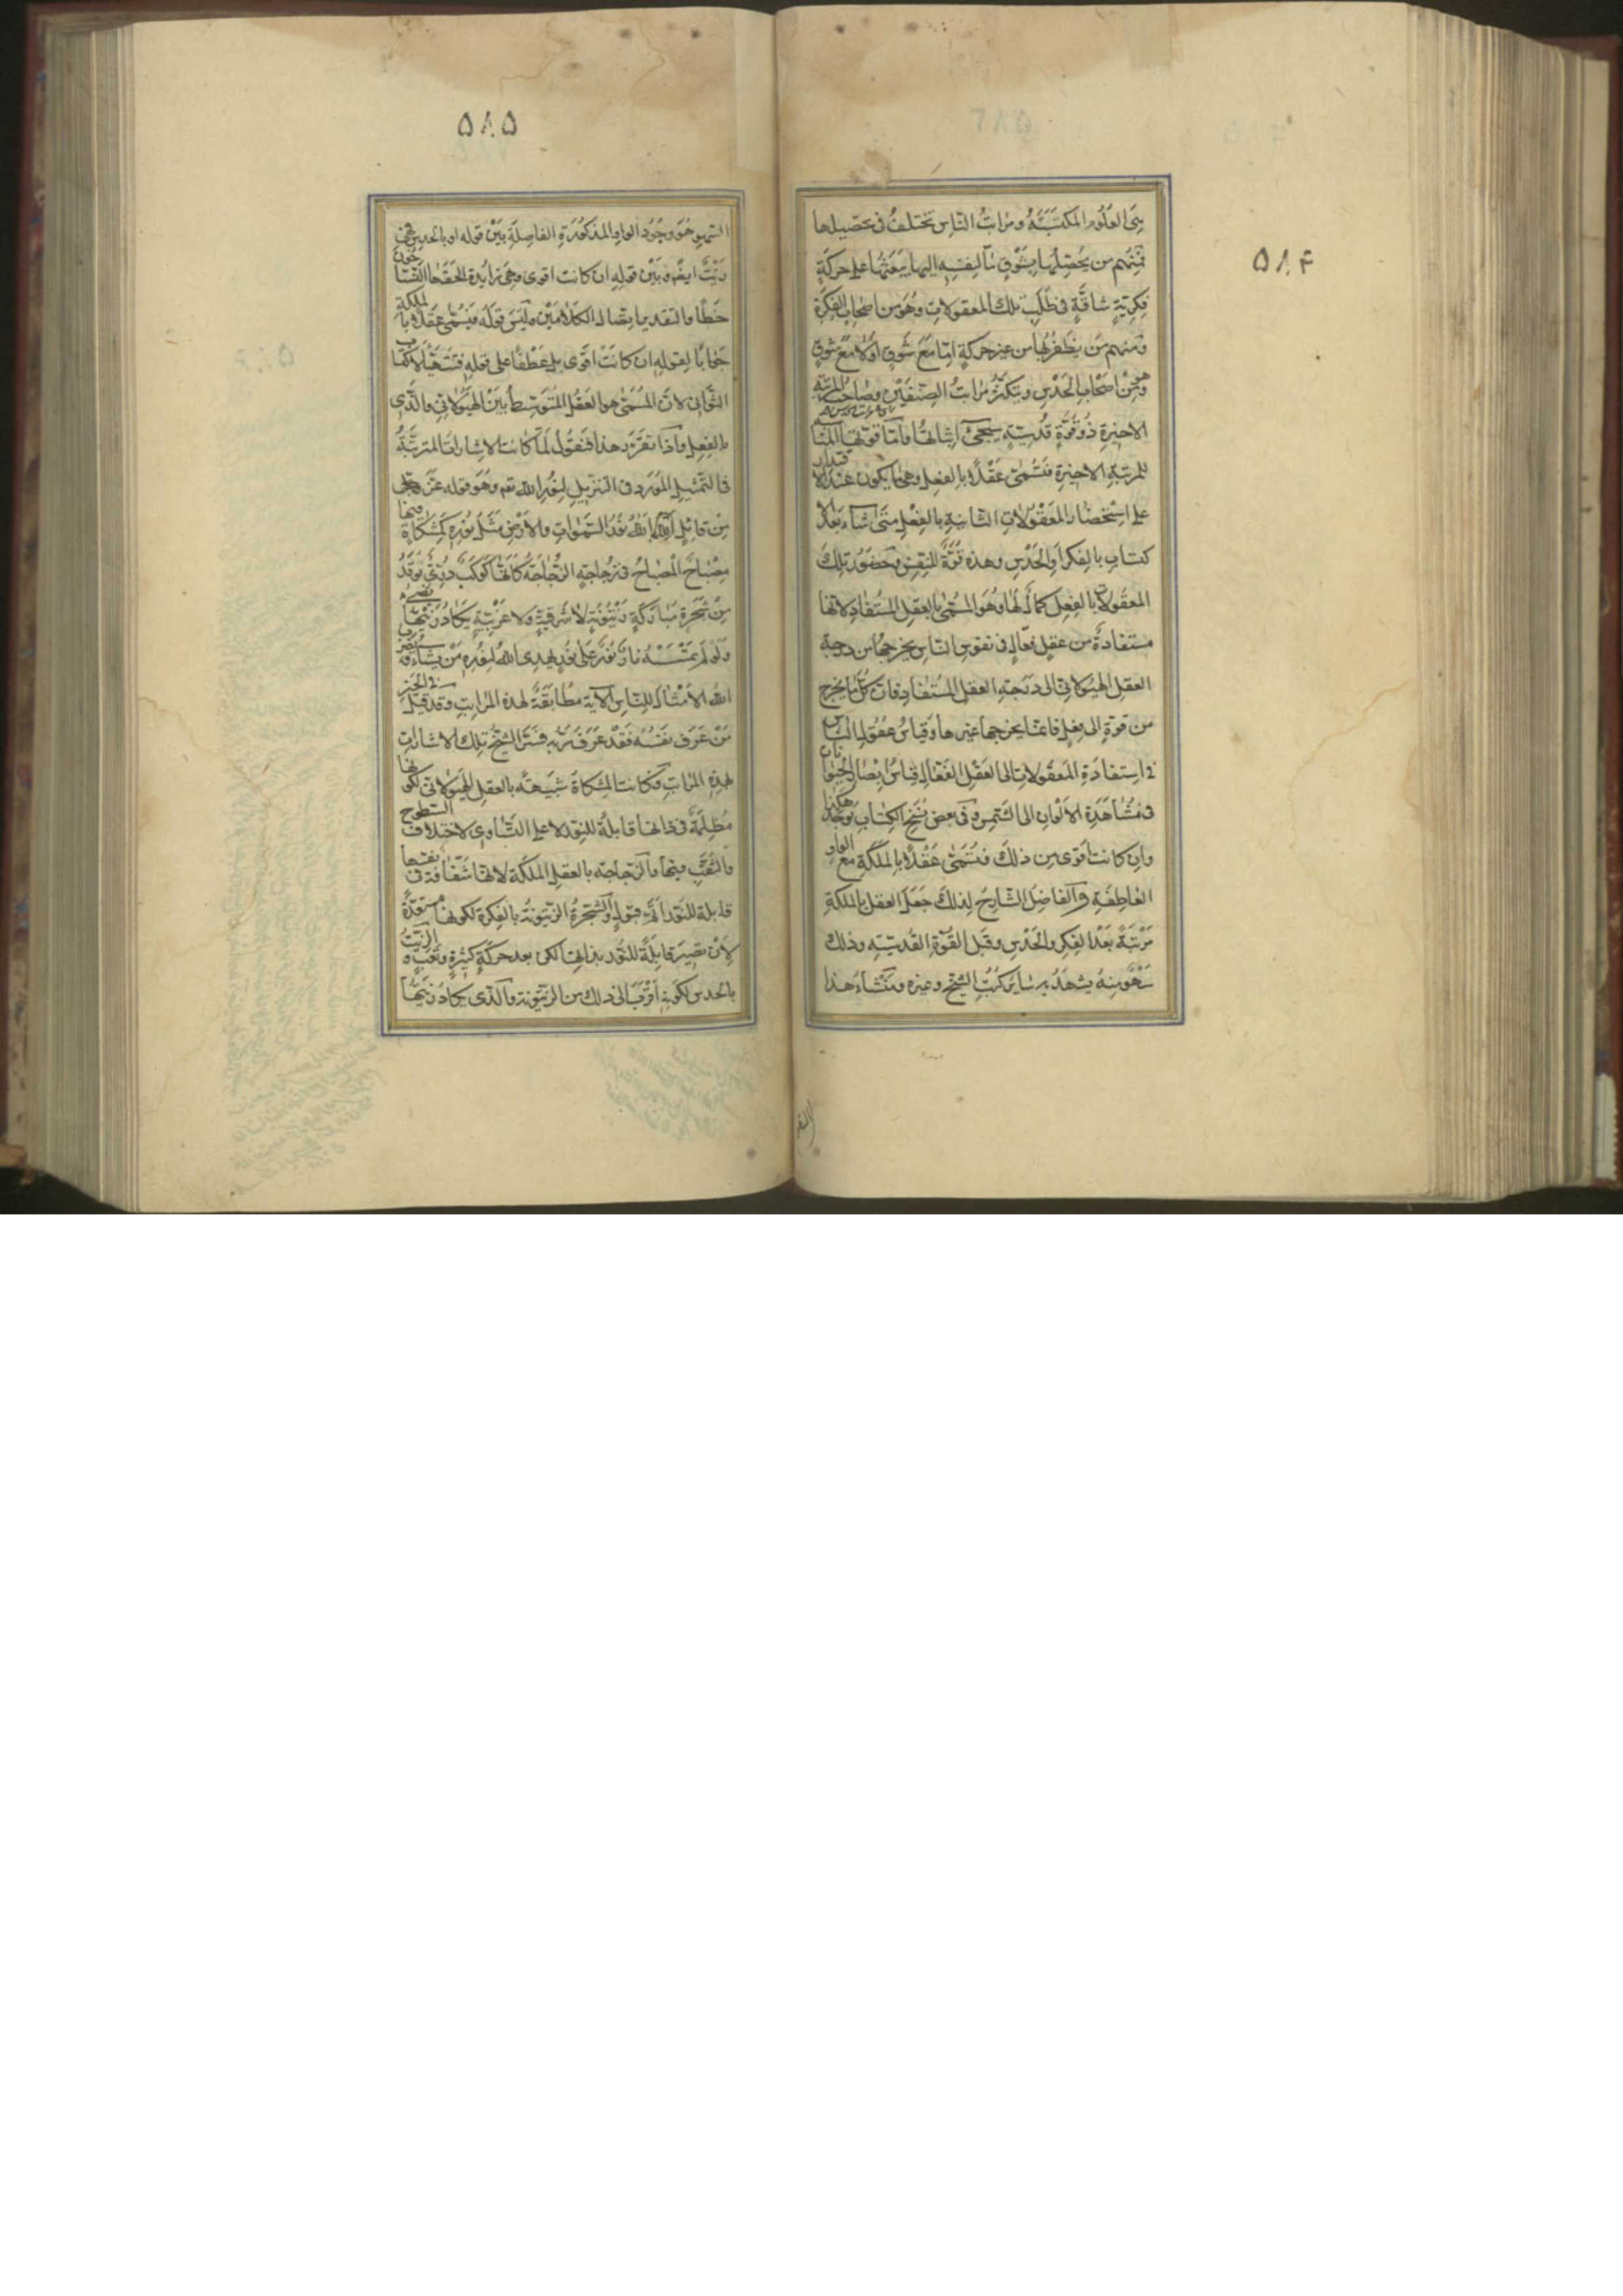 ۵۸۴
هى العلوم المكتسبة ومراتب الناس تختلف فى تحصيلها
فمنهم من يحصلها بشوق ما لنفسه اليها يبعثها على حركة
فكرية شاقة فى طلب تلك المعقولات وهو من اصحاب الفكرة
ومنهم من يظفر بها من غير حركة اما مع شوق او لا مع شوق
وهو من اصحاب الحدس وبتكثر مراتب الصنفين وصاحب المرتبة
الاخيرة ذو قوة قدسية سيجئ اثباتها واما قوتها المناسبة
للمرتبة الاخيرة فتسمى عقلا بالفعل وهى ما يكون عند الاقتدار
على استحضار المعقولات الثانية بالفعل متى شاء بعد الا
كتساب بالفكر او الحدس وهذه قوة للنفس وحضور تلك
المعقولات بالفعل كمال لها وهو المسمى بالعقل المستفاد لانها
مستفادة من عقل فعال فى نفوس الناس يخرجها من درجة
العقل الهيولانى الى درجة العقل المستفاد فان كل ما يخرج
من قوة الى فعل فانما يخرجها غيرها وقياس عقول الناس
فى استفادة المعقولات الى العقل الفعال قياس ابصار الحيوانات
فى مشاهدة الالوان الى الشمس وفى بعض نسخ الكتاب توجد هكذا
وان كانت اقوى من ذلك فتسمى عقلا بالملكة مع الواو
العاطفة والفاضل الشارح لذلك جعل العقل بالملكة
مرتبة بعد الفكر والحدس وقبل القوة القدسية وذلك
سهو منه يشهد به سائر كتب الشيخ وغيره ومنشاء هذا
۵۸۵
السهو هو وجود الواو المذكورة الفاصلة بين قوله او بالحدس فهى
زيت ايضا وبين قوله ان كانت اقوى وهى زايدة الحقها الناسخون
خطا والتقدير اتصال الكلامين وليس قوله فيسمى عقلا بالملكة
جوابا لقوله ان كانت اقوى بل عطفا على قوله فتتهيأ لاكتساب
الثوانى لان المسمى هو العقل المتوسط بين الهيولانى والذى
بالفعل واذا تقرر هذا فنقول لما كانت الاشارات المترتبة
فى التمثيل المورد فى التنزيل لنور الله تع وهو قوله عز وجل
من قائل الله نور السموات والارض مثل نوره كمشكاة فيها
مصباح المصباح فى زجاجة الزجاجة كانها كوكب درى يوقد
من شجرة مباركة زيتونة لا شرقية ولا غربية يكاد زيتها يضيء
ولو لم تمسسه نار نور على نور يهدى الله لنوره من يشاء ويضرب
الله الامثال للناس الآية مطابقة لهذه المراتب وقد قيل فى الخبر
من عرف نفسه فقد عرف ربه فسر الشيخ تلك الاشارات
بهذه المراتب فكانت المشكاة شبيهة بالعقل الهيولانى لكونها
مظلمة فى ذاتها قابلة للنور لا على التساوى لاختلاف السطوح
والثقب فيها والزجاجة بالعقل الملكة لانها شفافة فى نفسها
قابلة للنور اتم قبول والشجرة الزيتونة بالفكرة لكونها مستعدة
لان تصير قابلة للنور بذاتها لكن بعد حركة كثيرة وتعب والزيت
بالحدس لكونه اقرب الى ذلك من الزيتونة والذى يكاد زيتها